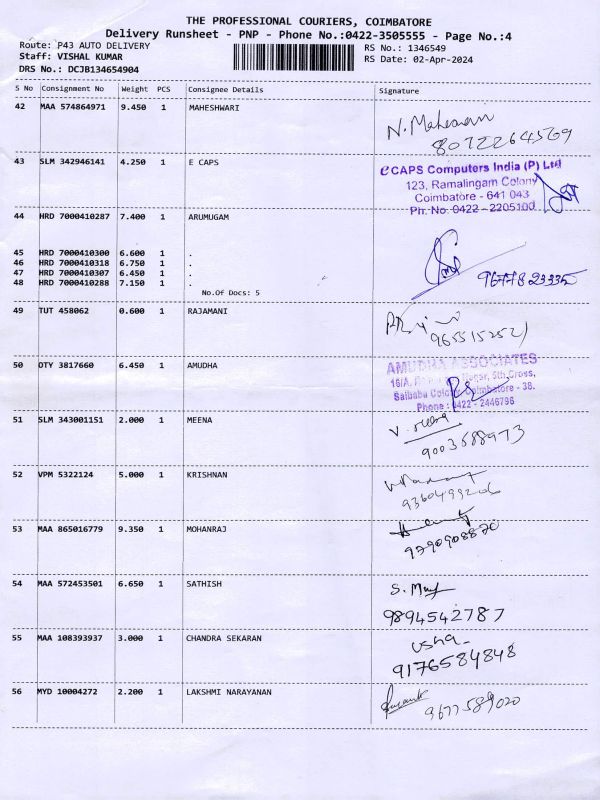 THE PROFESSIONAL COURIERS, COIMBATORE
Delivery Runsheet - PNP - Phone No.:0422-3505555 - Page No.:4
Route: P43 AUTO DELIVERY
RS No.: 1346549
Staff: VISHAL KUMAR
RS Date: 02-Apr-2024
DRS No.: DCJB134654904
S No Consignment No Weight PCS Consignee Details Signature
42 MAA 574864971 9.450 1 MAHESHWARI
N. Maheswari
8072264509
43 SLM 342946141 4.250 1 E CAPS
eCAPS Computers India (P) Ltd
123, Ramalingam Colony
Coimbatore - 641 043
Ph. No. 0422 - 2205100
44 HRD 7000410287 7.400 1 ARUMUGAM
45 HRD 7000410300 6.600 1 .
46 HRD 7000410318 6.750 1 .
47 HRD 7000410307 6.450 1 .
48 HRD 7000410288 7.150 1 .
No.Of Docs: 5
49 TUT 458062 0.600 1 RAJAMANI
9655152521
50 OTY 3817660 6.450 1 AMUDHA
AMUDHA ASSOCIATES
16/A, Nagar, 5th Cross,
Saibaba Colony, Coimbatore - 38.
Phone : 0422 - 2446796
51 SLM 343001151 2.000 1 MEENA
V. Meena
9003588973
52 VPM 5322124 5.000 1 KRISHNAN
9360499206
53 MAA 865016779 9.350 1 MOHANRAJ
9790908820
54 MAA 572453501 6.650 1 SATHISH
9894542787
55 MAA 108393937 3.000 1 CHANDRA SEKARAN
Usha
9176584848
56 MYD 10004272 2.200 1 LAKSHMI NARAYANAN
9677589020